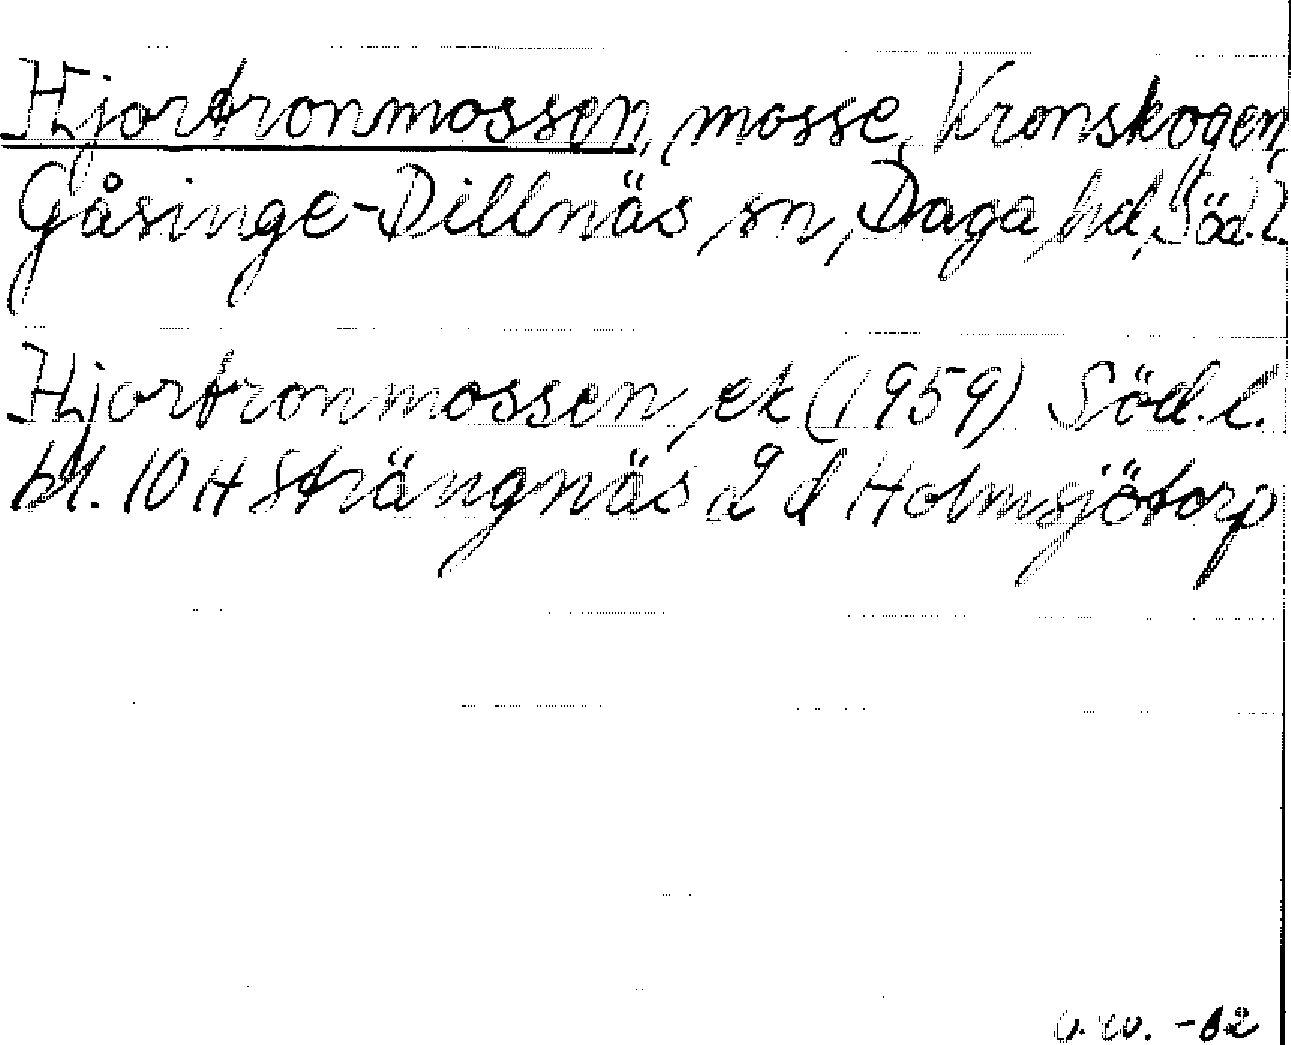 Hjortronmossen, mosse, Kronskogen,
Gåsinge-Dillnäs sn, Daga hd, Söd.l.
Hjortronmossen, ek (1959) Söd.l.
bl. 10 H Strängnäs 2 d Holmsjötorp
-62